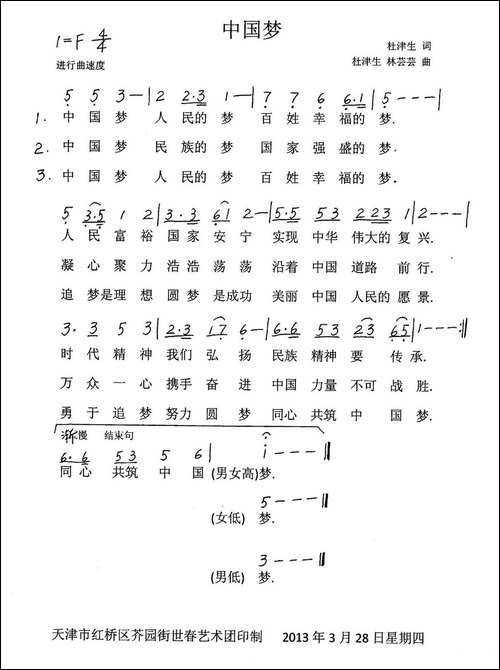 中国梦
1=F 4/4
杜津生 词
进行曲速度
杜津生 林芸芸 曲
5 5 3—|2 2·3 1—|7 7 6 6·1|5———|
1. 中 国 梦 人 民的 梦 百 姓 幸 福的 梦.
2. 中 国 梦 民 族的 梦 国 家 强 盛的 梦.
3. 中 国 梦 人 民的 梦 百 姓 幸 福的 梦.
5 3·5 1 2|3·3 61 2—|5·5 53 223 1|2———|
人 民 富 裕 国家 安 宁 实现 中华 伟大的 复 兴.
凝 心 聚 力 浩浩 荡荡 沿着 中国 道路 前 行.
追 梦是理 想 圆梦 是成功 美丽 中国 人民的 愿 景.
3· 3 5 3|2·3 17 6—|6·6 53 23 65|1———:||
时 代 精 神 我们 弘 扬 民族 精神 要 传承.
万 众 一 心 携手 奋 进 中国 力量 不可 战 胜.
勇 于 追 梦 努力 圆 梦 同心 共筑 中 国 梦.
渐慢 结束句
6·6 53 5 6| i———||
同心 共筑 中 国 (男女高)梦.
5———||
(女低) 梦.
3———||
(男低) 梦.
天津市红桥区芥园街世春艺术团印制 2013 年 3 月 28 日星期四